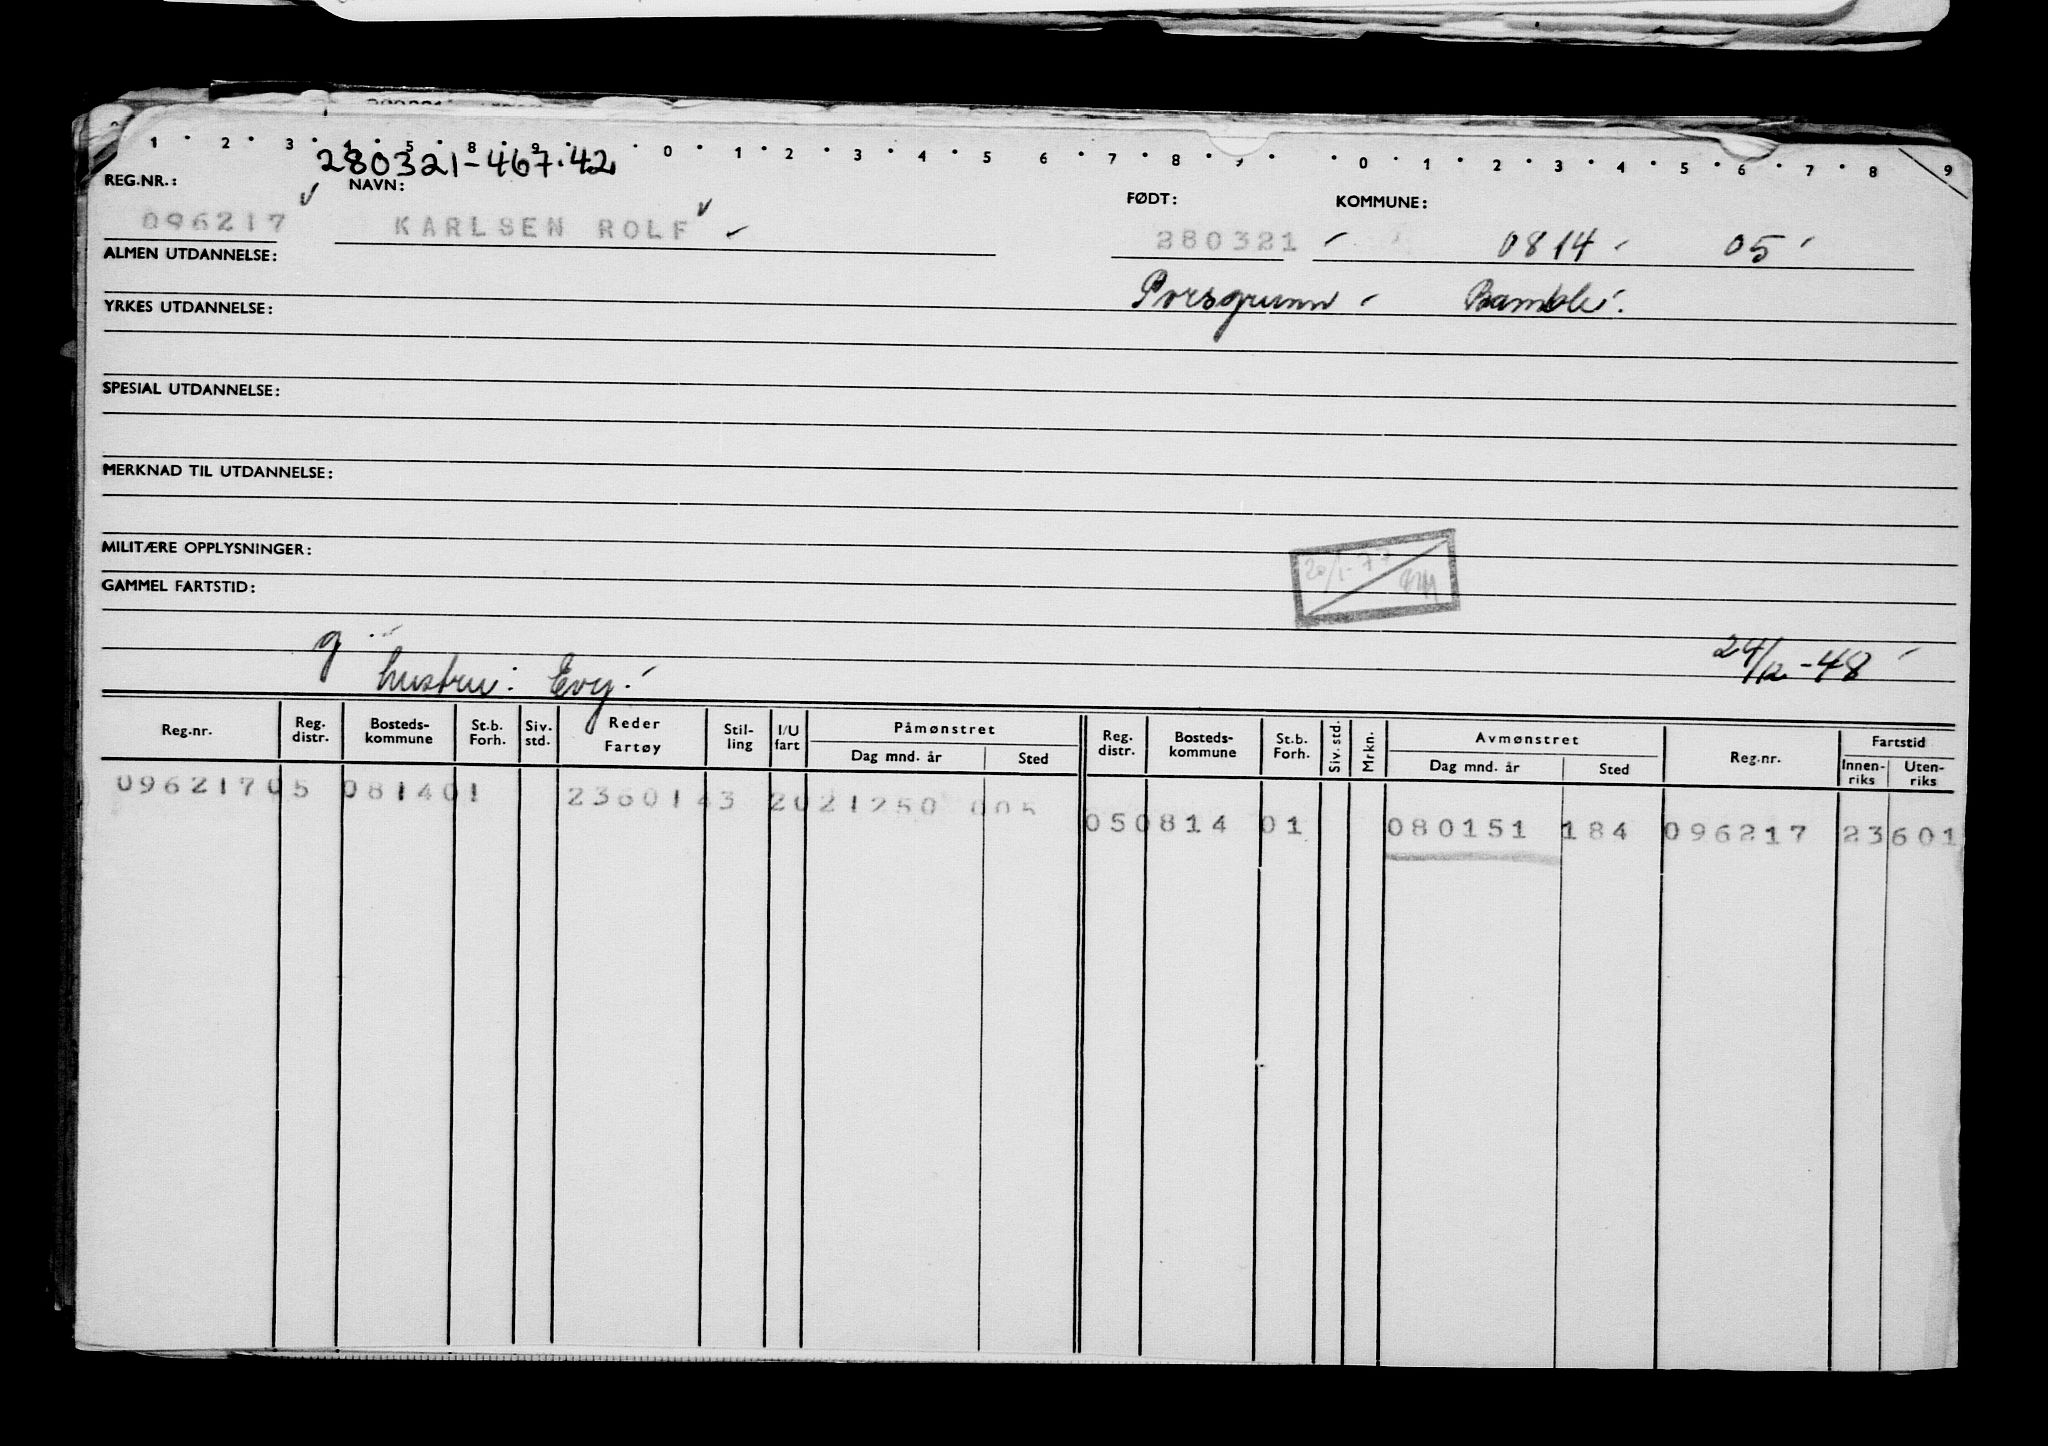 1 . 2 . 3 . 4 . 5 . 8 . 9 . 0 . 1 . 2 . 3 . 4 . 5 . 6 . 7 . 8 . 9 . . 0 . 1 . 2 . 3 . 4 . 5 . 6 . 7 . 8 9
280321-467.42
REG.NR.: NAVN: FØDT: KOMMUNE:
096217 KARLSEN ROLF 280321 0814 05
ALMEN UTDANNELSE:
Porsgrunn Bamble.
YRKES UTDANNELSE:
SPESIAL UTDANNELSE:
MERKNAD TIL UTDANNELSE:
MILITÆRE OPPLYSNINGER:
20/1-77
GAMMEL FARTSTID:
g
hustru: Evy. 24/12-48
Reg.nr. Reg. distr. Bosteds-kommune St.b. Forh. Siv. std. Reder Fartøy Stil-ling I/U fart Påmønstret Dag mnd. år Sted Reg. distr. Bosteds-kommune St.b. Forh. Siv. std. Mrkn. Avmønstret Dag mnd. år Sted Reg.nr. Fartstid Innen-riks Uten-riks
096217 05 0814 01 23601 43 2 021250 005
05 0814 01 080151 184 096217 23601